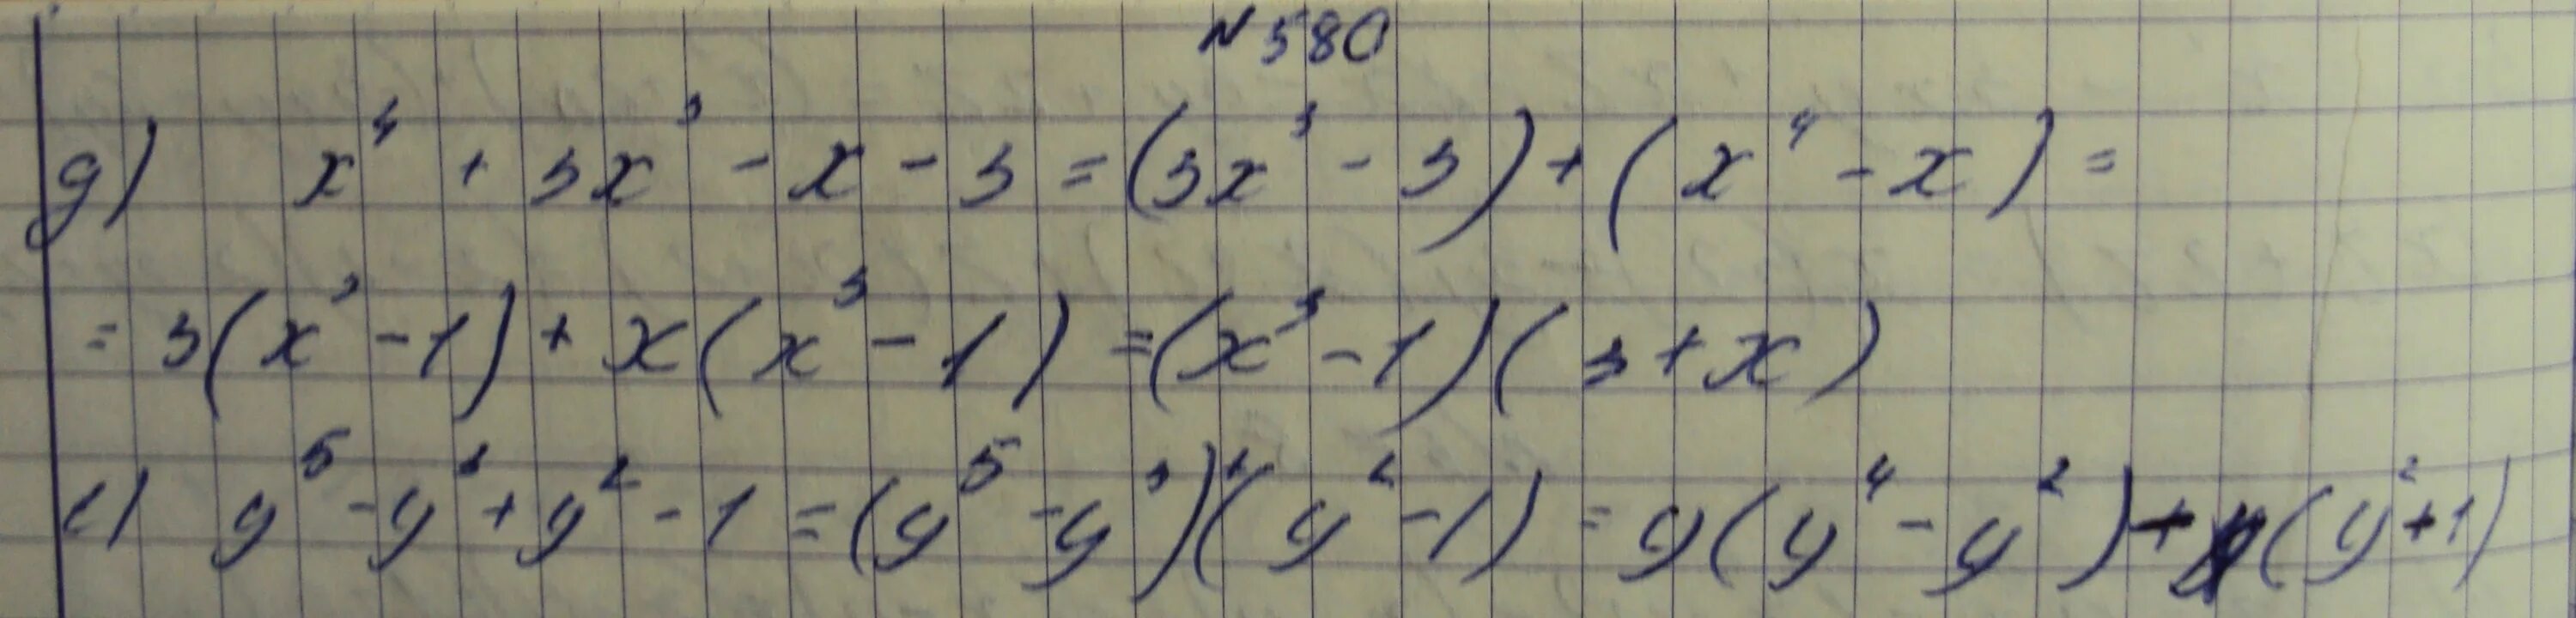 N 580
д) x⁴ + 3x³ - x - 3 = (3x³ - 3) + (x⁴ - x) =
= 3(x³ - 1) + x(x³ - 1) = (x³ - 1)(3 + x)
е) y⁵ - y³ + y² - 1 = (y⁵ - y³)+(y² - 1) = y(y⁴ - y²) + (y² + 1)